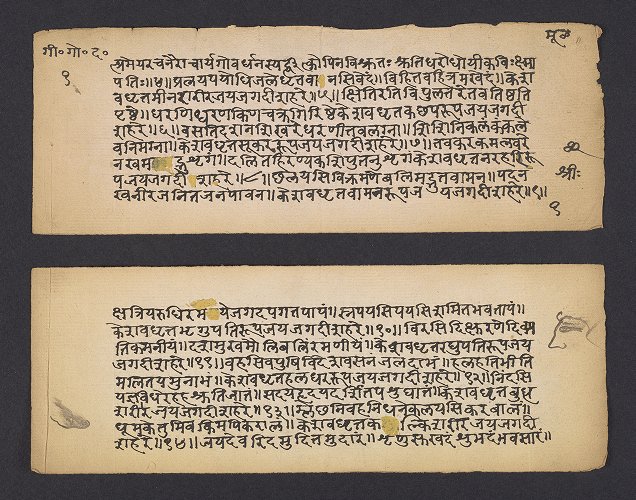 गी॰गो॰द॰
१
प्रमेयरचनैराचार्यगोवर्धनस्पर्द्धी कोपि न विश्रुतः श्रुतिधरो धोयी कविः क्ष्मा
पतिः॥४॥ प्रलयपयोधिजले धृतवा नसि वेदं॥ विहितवहित्रमखेदं॥ केश
वधृतमीनशरीर जय जगदीश हरे॥५॥ क्षितिरतिविपुलतरे तव तिष्ठति
पृष्ठे॥ धरणिधरणकिणचक्रगरिष्ठे केशवधृतकछपरूप जय जगदी
शहरे॥६॥ वसति दशनशिखरे धरणी तव लग्ना॥ शशिनि कलंककले
व निमग्ना॥ केशवधृतसूकररूप जय जगदीशहरे॥७॥ तव करकमलवरे
नखम द्भु शृंगं॥ दलितहिरण्यकशिपुतनुभृंगं केशवधृतनरहरिरू
प जयजगदी शहरे॥८॥ छलयसि विक्रमणे बलिमद्भुतवामन॥ पदन
खनीरजनितजनपावन॥ केशवधृतवामनरूप ज यजगदीशहरे॥९॥
श्रीः
१
क्षत्रियरुधिरम येजगदपगतपापं॥ स्नपयसि पयसि शमितभवतापं॥
केशवधृतभृगुपतिरूप जय जगदीशहरे॥१०॥ वितरसि दिक्षु रणे दिक्प
तिकमनीयं॥ दशमुखमौलिबलिं रमणीयं॥ केशवधृतरघुपतिरूप जय
जगदीशहरे॥११॥ वहसि वपुषि विशदे वसनं जलदाभं॥ हलहतिभीति
मिलितयमुनाभं॥ केशवधृतहलधररूप जयजगदीशहरे॥१२॥ निंदसि
यज्ञविधेरहह श्रुतिजातं॥ सदयहृदयदर्शितपशुघातं॥ केशवधृतबुद्ध
शरीर जयजगदीशहरे॥१३॥ म्लेछनिवहनिधने कलयसि करवालं॥
धूमकेतुमिव किमपि करालं॥ केशवधृतक ल्किशरीर जयजगदी
शहरे॥१४॥ जयदेवकवेरिदमुदितमुदारं॥ शृणु सुखदं शुभदं भवसारं॥